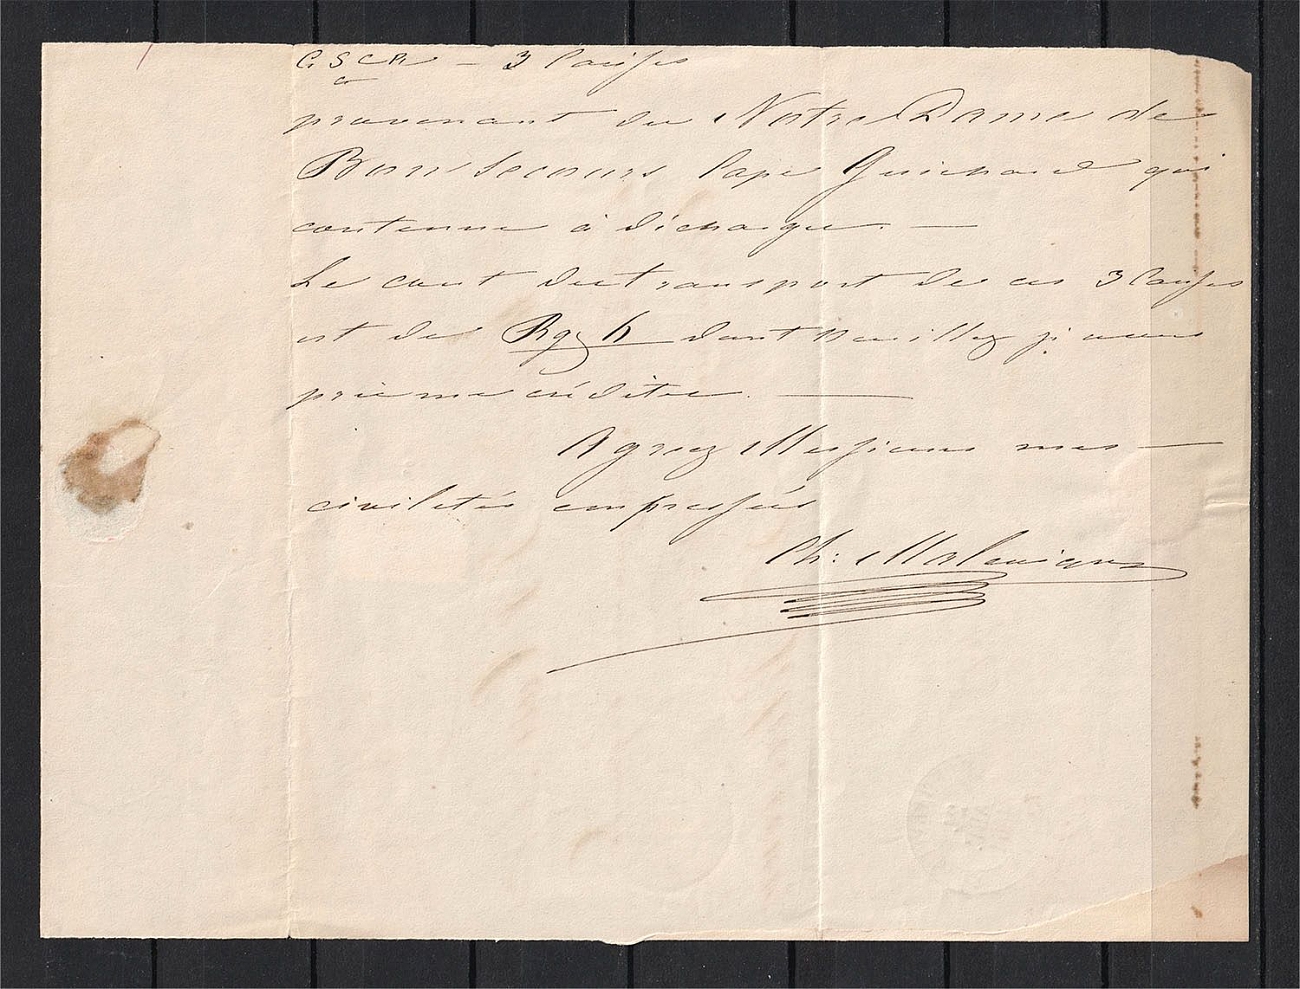 3 Caisses
provenant du Notre Dame de
Bon Secours Cape Guichard qui
contenue à décharger. —
Le cout du transport de ces 3 Caisses
est de dont veuillez je vous
prie me créditer. —
Agreez Messieurs mes —
civilités empressées
Ph: